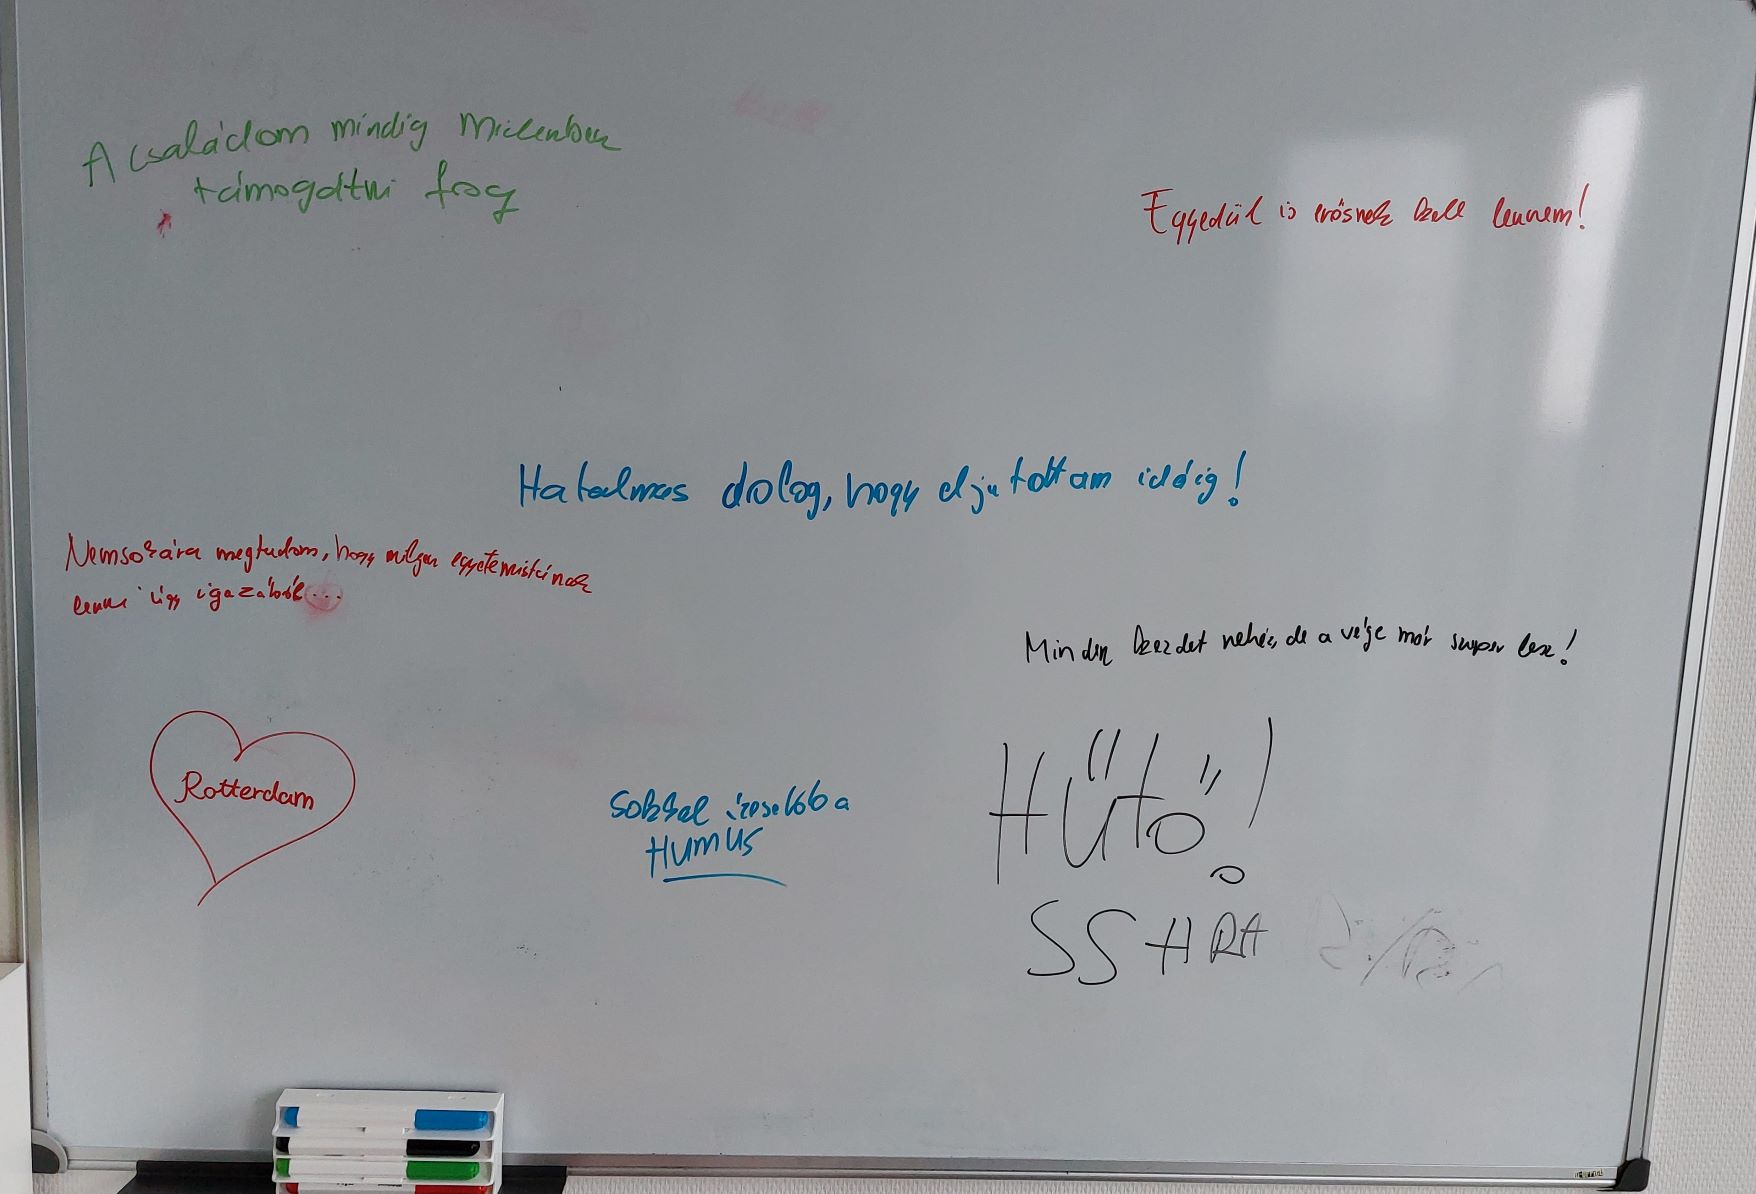 A családom mindig mindenben
támogatni fog
Egyedül is erősnek kell lennem!
Hatalmas dolog, hogy eljutottam idáig!
Nemsokára megtudom, hogy milyen egyetemistának
lenni úgy igazából...
Minden kezdet nehéz, de a vége már super lesz!
Rotterdam
Sokkal ízesebb a
HUMUS
HŰtő!
SSHRA